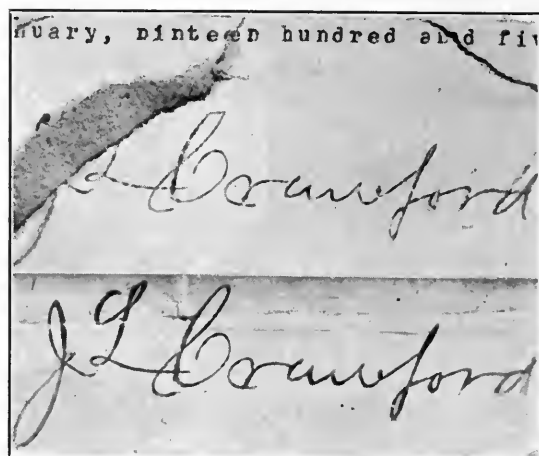 nuary, ninteen hundred and fiv
J L Crawford
J L Crawford